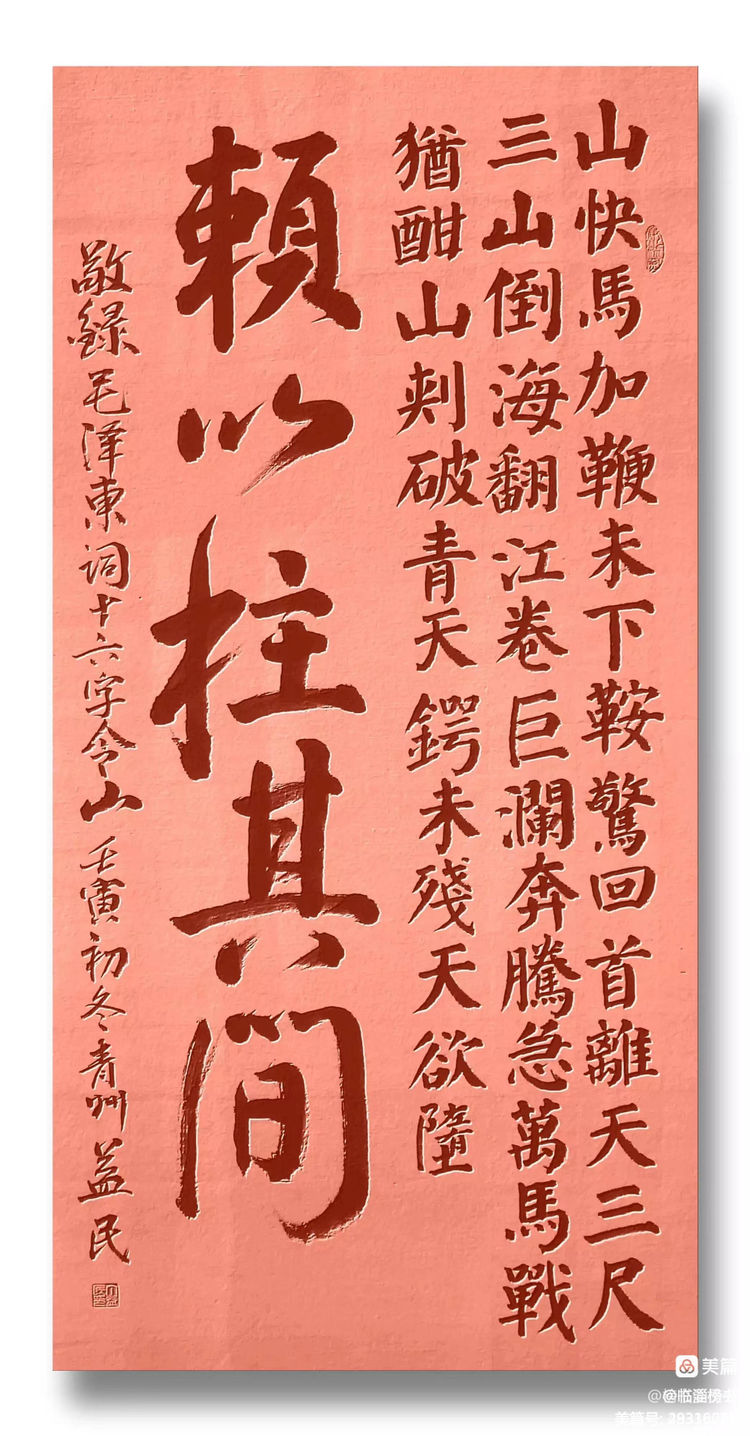 山快馬加鞭未下鞍驚回首離天三尺
三山倒海翻江卷巨瀾奔騰急萬馬戰
猶酣山刺破青天鍔未殘天欲墮
頼以柱其間
敬録毛泽東词十六字令山壬寅初冬青州益民
美篇
美篇号: